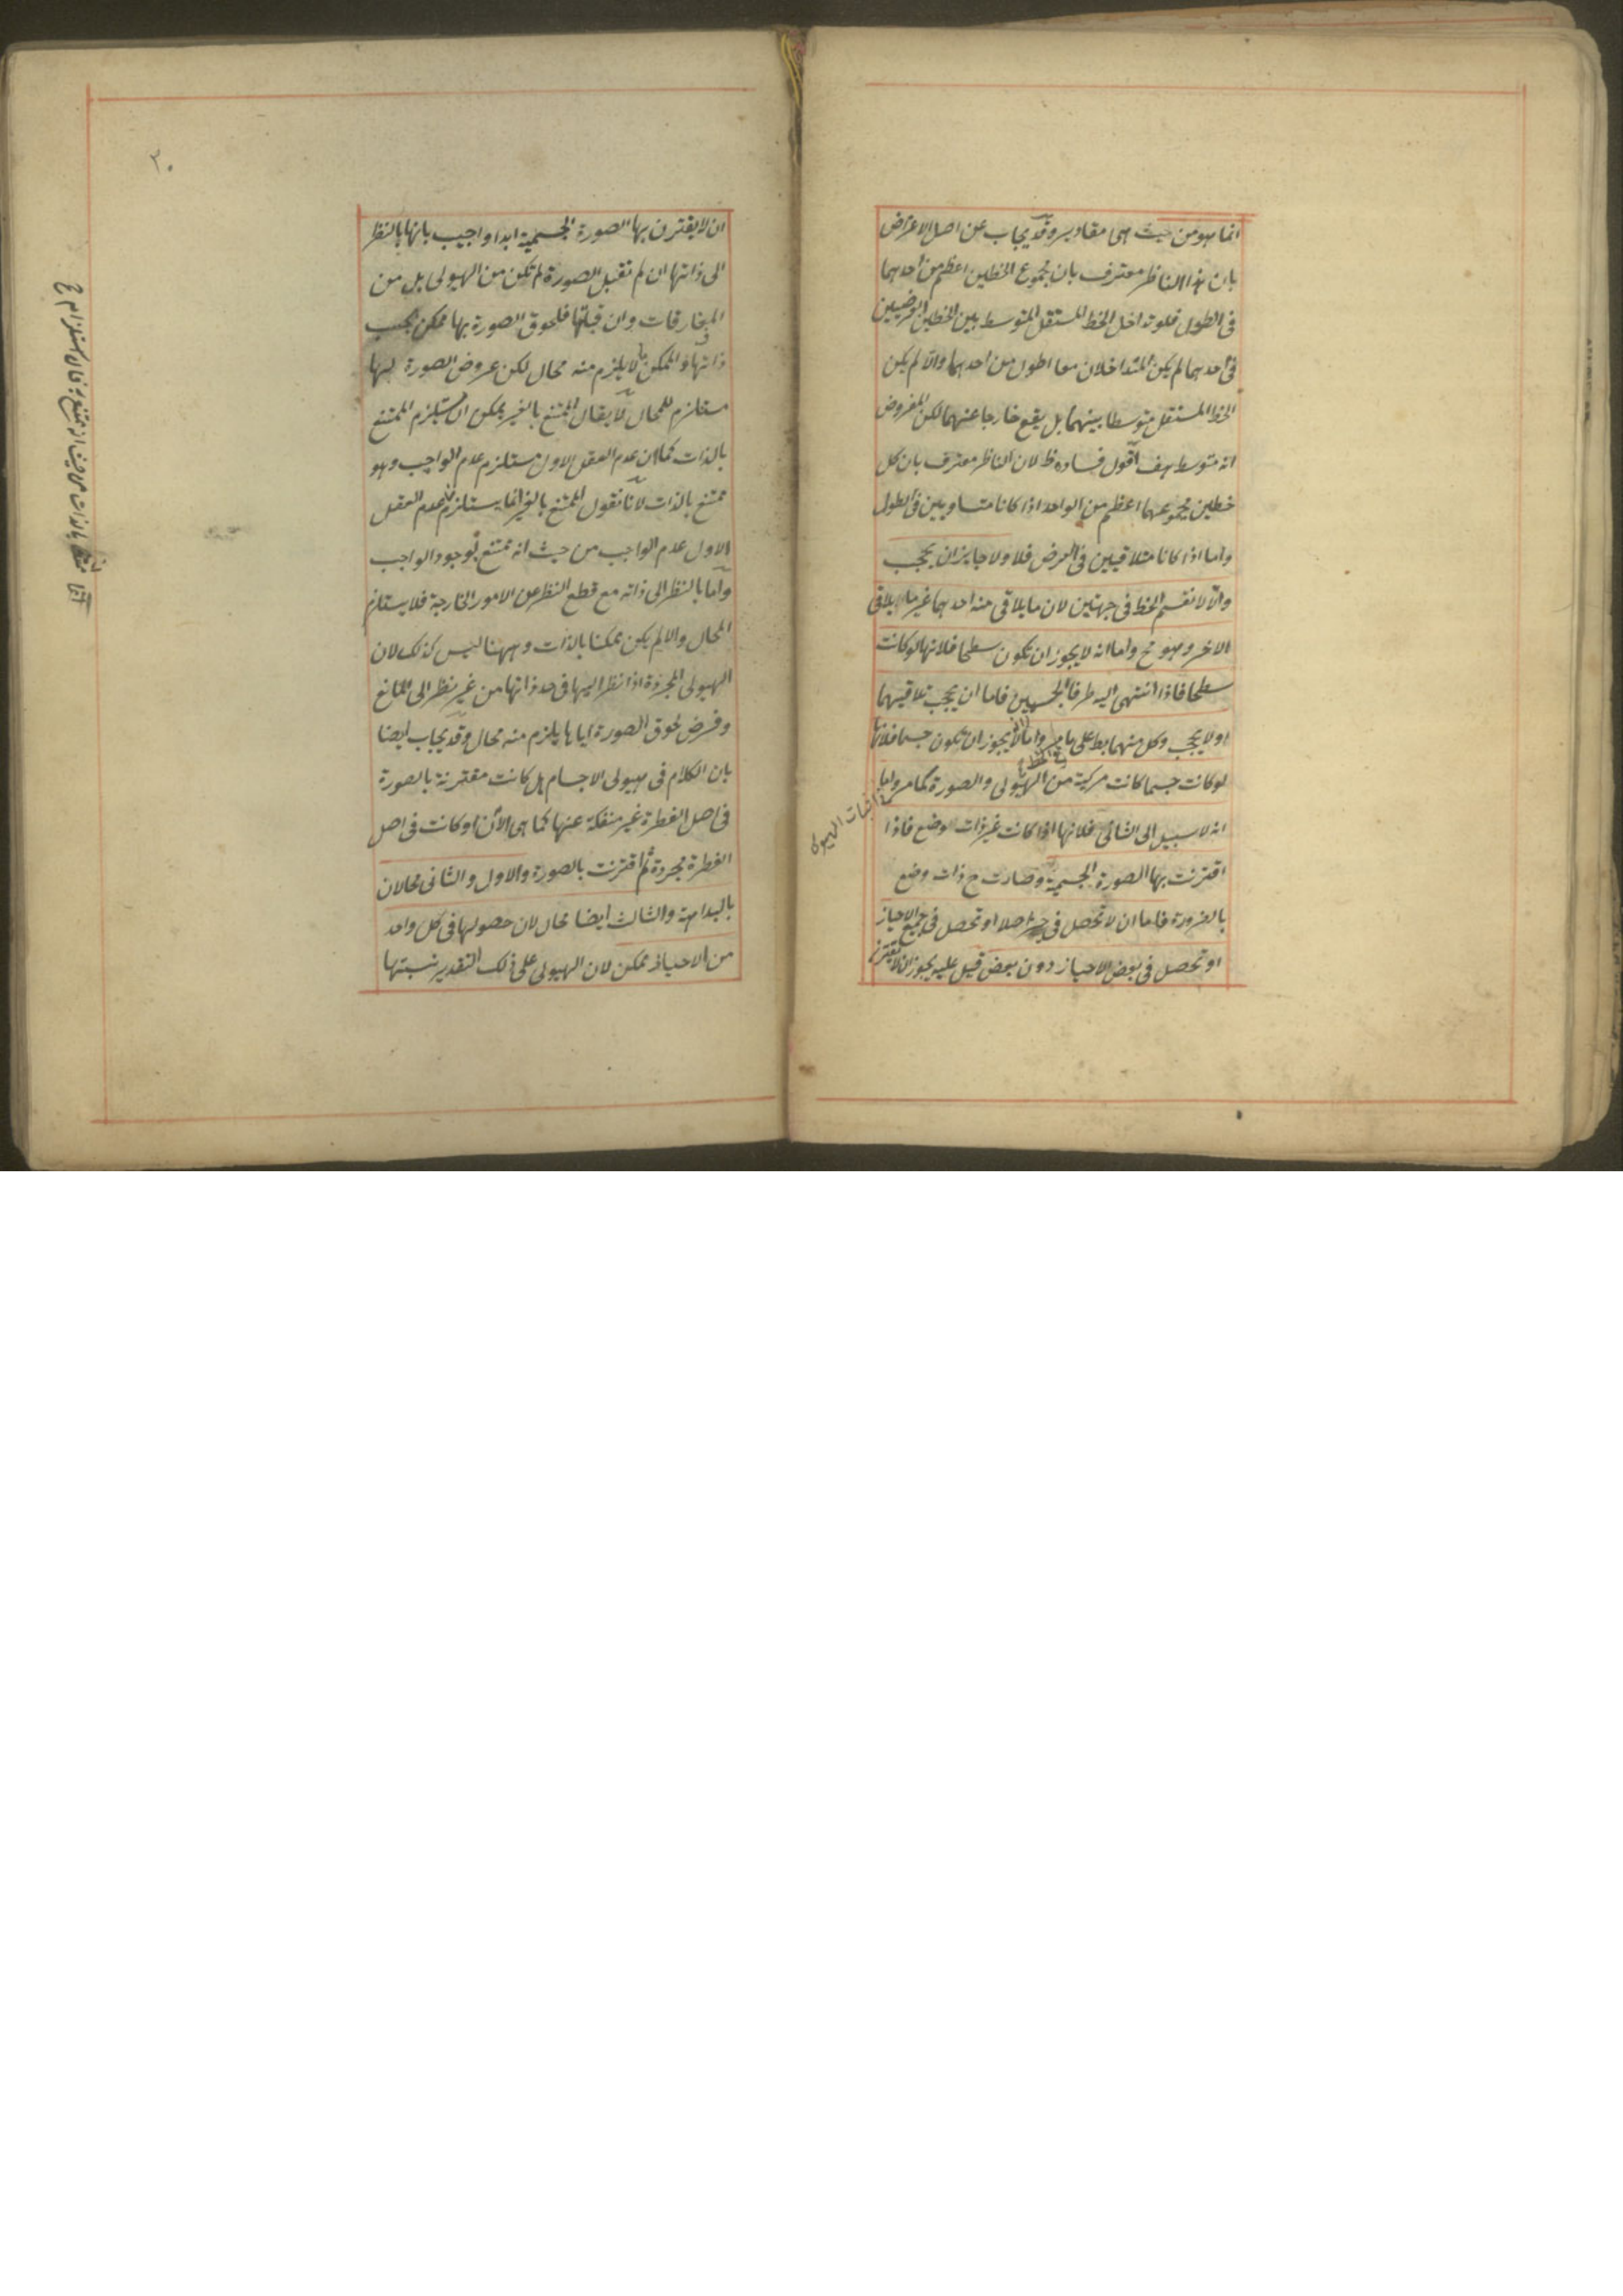 انما هو من حيث هى مقادير وقد يجاب عن اصل الاعتراض
بان هذا الناظر معترف بان مجموع الخطين اعظم من احدهما
فى الطول فلو تداخل الخط المستقل المتوسط بين الخطين العرضيين
فى احدهما لم يكن المتداخلان معا اطول من احدهما والا لم يكن
الخط المستقل متوسطا بينهما بل يقع خارجا عنهما لكن المفروض
انه متوسط هف اقول فساده ظ لان الناظر معترف بان كل
خطين مجموعهما اعظم من الواحد اذا كانا متساويين فى الطول
واما اذا كانا متلاقيين فى العرض فلا ولا جايز ان يحجب
والا لانقسم الخط فى جهتين لان ما يلاقى منه احدهما غير ما يلاقى
الاخر وهو مح واما انه لا يجوز ان تكون سطحا فلانها لو كانت
سطحا فاذا انتهى اليه طرفا الجسمين فاما ان يحجب تلاقيهما
او لا يحجب وكل منهما بط على ما مر واما انه لا يجوز ان تكون جسما فلانها
لو كانت جسما كانت مركبة من الهيولى والصورة كما مر واما
فى اثبات الهيولى
انه لا سبيل الى الثانى فلانها اذا كانت غير ذات وضع فاذا
اقترنت بها الصورة الجسمية وصارت ح ذات وضع
بالضرورة فاما ان لا تحصل فى حيز اصلا او تحصل فى جميع الاحياز
او تحصل فى بعض الاحياز دون بعض قيل عليه يجوز ان لا يقترن
٢٠
ان لا يقترن بها الصورة الجسمية ابدا واجيب بانها بالنظر
الى ذاتها ان لم تقبل الصورة لم تكن من الهيولى بل من
المفارقات وان قبلتها فلحوق الصورة بها ممكن بحسب
ذاتها والممكن لا يلزم منه محال لكن عروض الصورة لها
مستلزم للمحال لا يقال الممتنع بالغير يمكن ان يستلزم الممتنع
بالذات كما ان عدم العقل الاول مستلزم عدم الواجب وهو
ممتنع بالذات لانا نقول الممتنع بالغير انما يستلزم عدم العقل
الاول عدم الواجب من حيث انه ممتنع بوجود الواجب
واما بالنظر الى ذاته مع قطع النظر عن الامور الخارجة فلا يستلزم
المحال والا لم يكن ممكنا بالذات وههنا ليس كذلك لان
الهيولى المجردة اذا نظر اليها فى حد ذاتها من غير نظر الى المانع
وفرض لحوق الصورة اياها يلزم منه محال وقد يجاب ايضا
بان الكلام فى هيولى الاجسام هل كانت مقترنة بالصورة
فى اصل الفطرة غير منفكة عنها كما هى الآن او كانت فى اصل
الفطرة مجردة ثم اقترنت بالصورة والاول والثانى محالان
بالبداهة والثالث ايضا محال لان حصولها فى كل واحد
من الاحياز ممكن لان الهيولى على ذلك التقدير نسبتها
بالذات من حيث انه ممتنع به فان استلزام